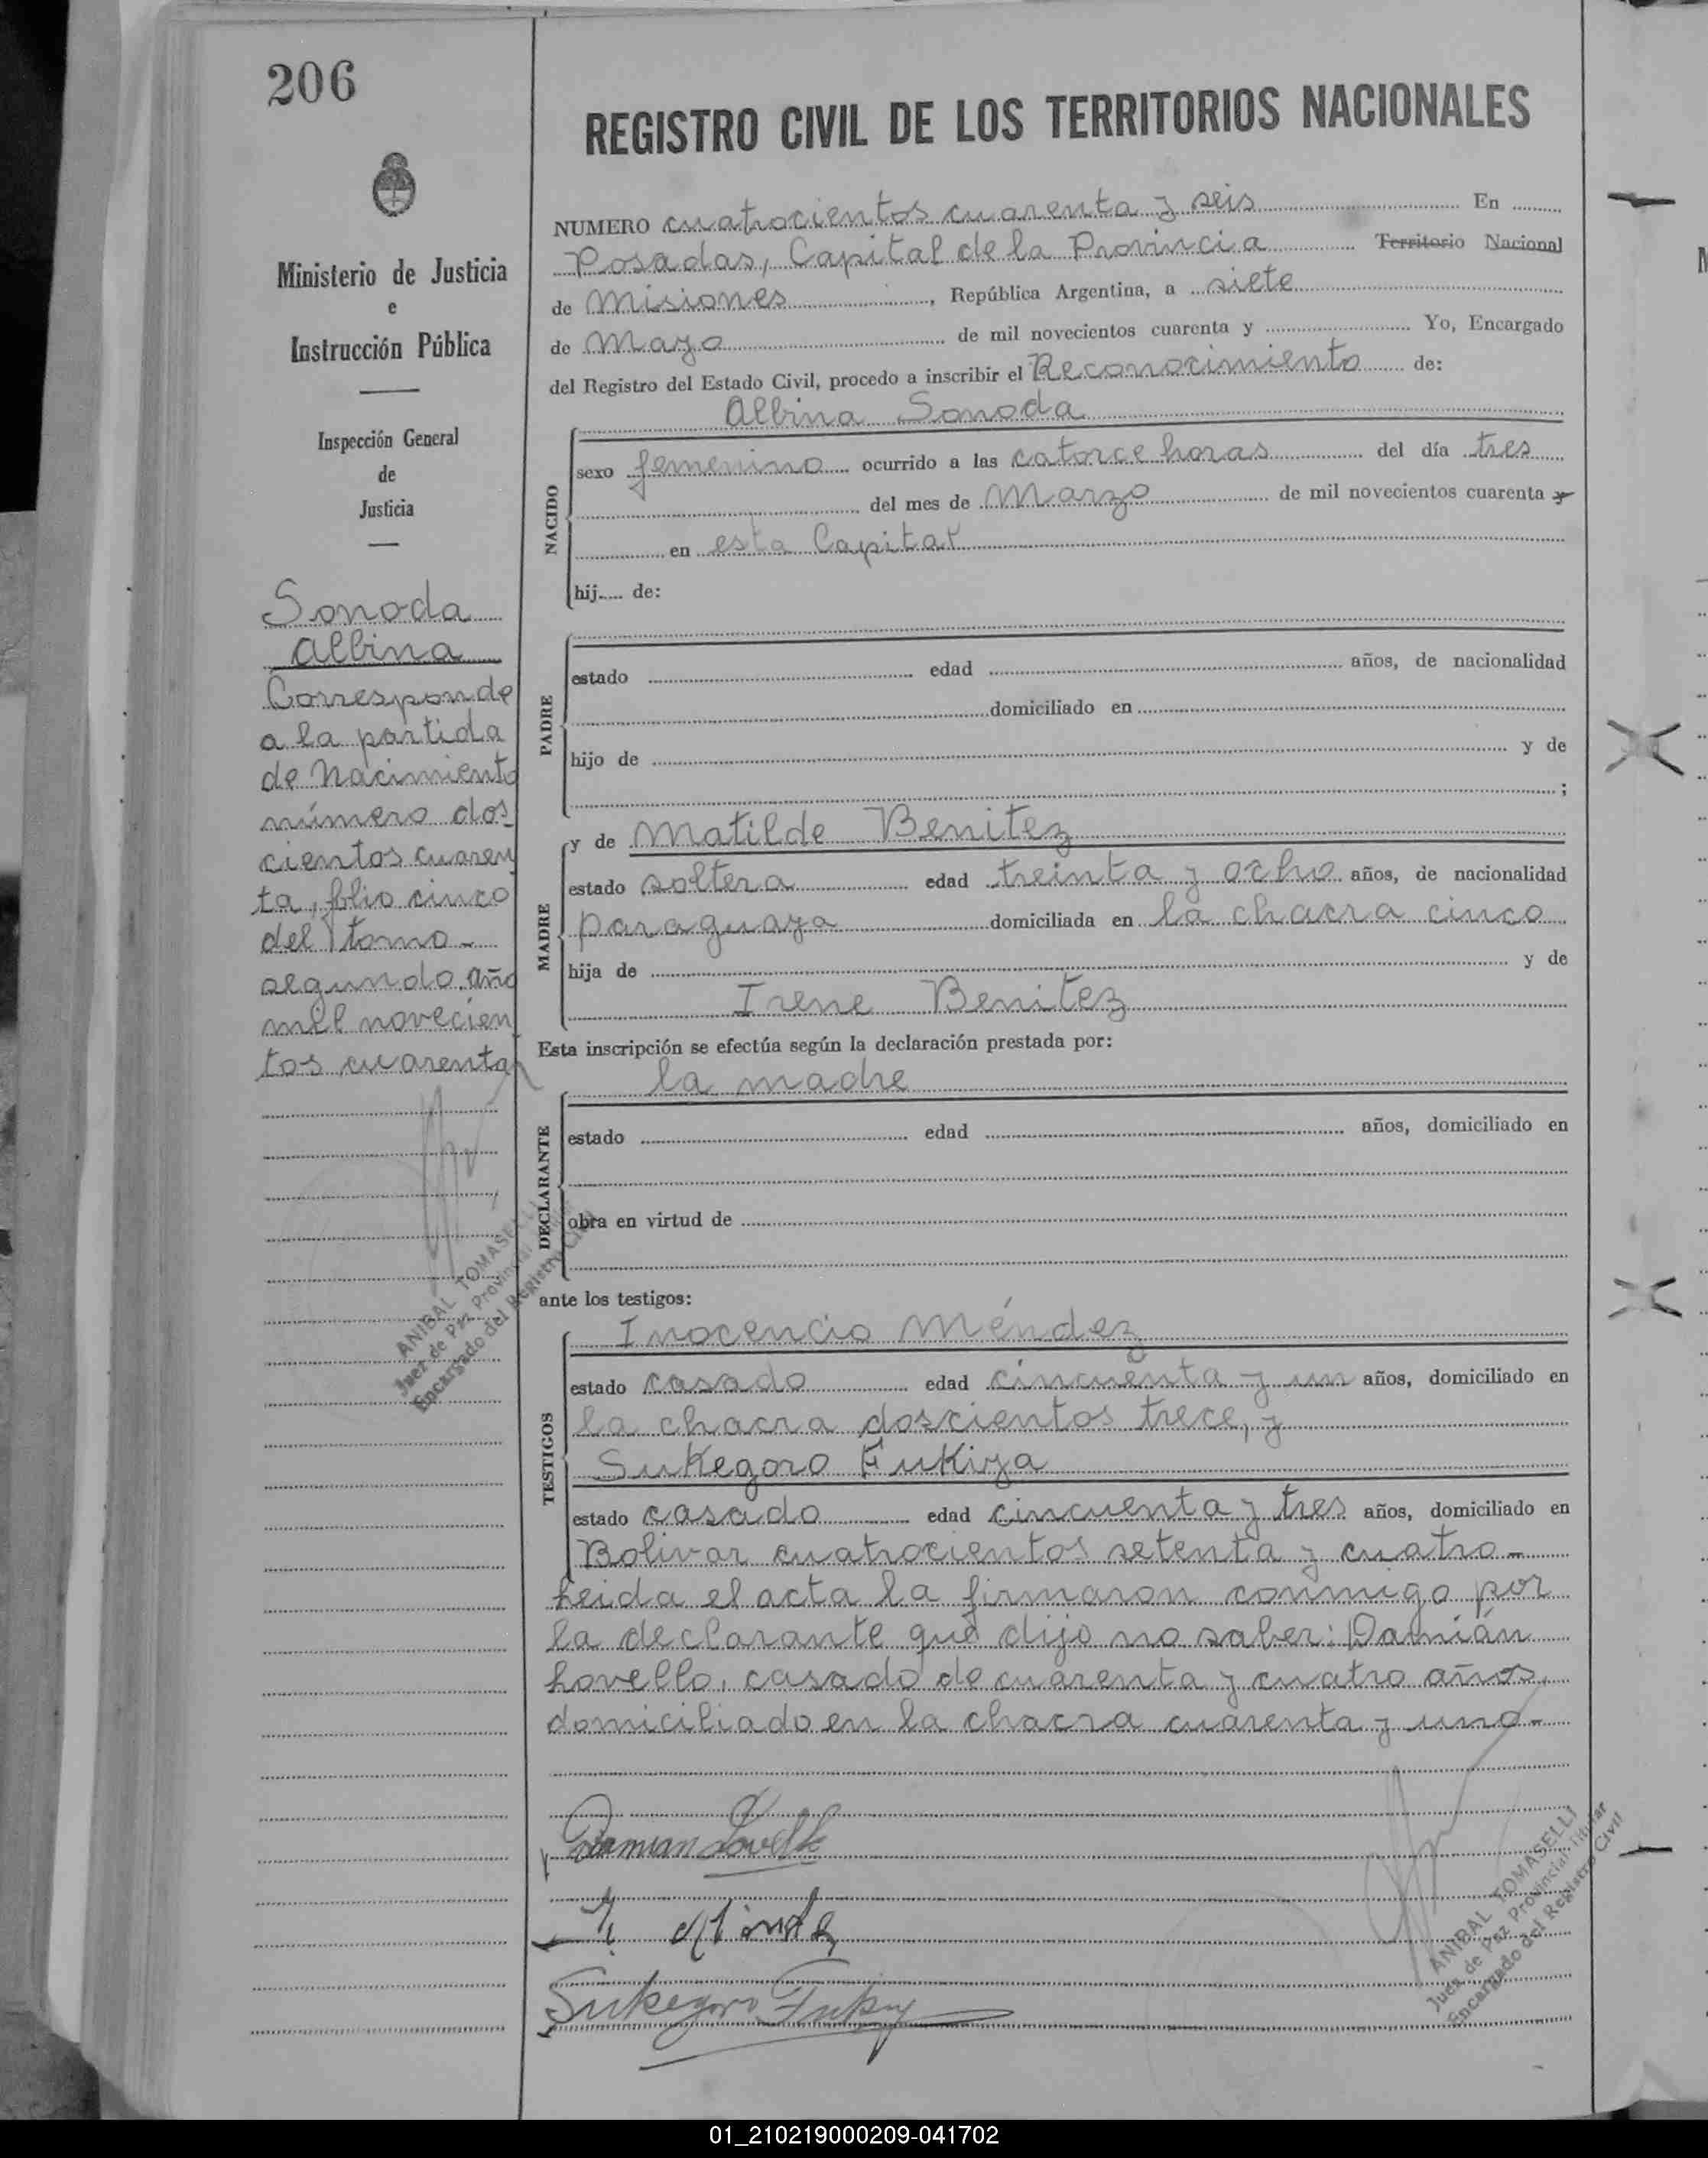 206
Ministerio de Justicia
e
Instrucción Pública
Inspección General
de
Justicia
Sonoda
Albina
Corresponde
a la partida
de Nacimiento
número dos-
cientos cuaren
ta, folio cinco
del tomo -
segundo año
mil novecien
tos cuarenta
ANIBAL TOMASELLI
Juez de Paz Provincial
Encargado del Registro Civil
REGISTRO CIVIL DE LOS TERRITORIOS NACIONALES
NUMERO cuatrocientos cuarenta y seis En
Posadas, Capital de la Provincia Territorio Nacional
de Misiones, República Argentina, a siete
de Mayo de mil novecientos cuarenta y Yo, Encargado
del Registro del Estado Civil, procedo a inscribir el Reconocimiento de:
Albina Sonoda
NACIDO
sexo femenino ocurrido a las catorce horas del día tres
del mes de Marzo de mil novecientos cuarenta y
en esta Capital
hij de:
PADRE
estado edad años, de nacionalidad
domiciliado en
hijo de y de
;
MADRE
y de Matilde Benitez
estado soltera edad treinta y ocho años, de nacionalidad
paraguaya domiciliada en la chacra cinco
hija de y de
Irene Benitez
Esta inscripción se efectúa según la declaración prestada por:
la madre
DECLARANTE
estado edad años, domiciliado en
obra en virtud de
ante los testigos:
TESTIGOS
Inocencio Méndez
estado casado edad cincuenta y un años, domiciliado en
la chacra doscientos trece, y
Sukegoro Fukiya
estado casado edad cincuenta y tres años, domiciliado en
Bolivar cuatrocientos setenta y cuatro -
Leida el acta la firmaron conmigo por
la declarante que dijo no saber: Damián
Lovello, casado de cuarenta y cuatro años,
domiciliado en la chacra cuarenta y uno -
Damian Lovello
Sukegoro Fukiy
ANIBAL TOMASELLI
Juez de Paz Provincial Titular
Encargado del Registro Civil
01_210219000209-041702